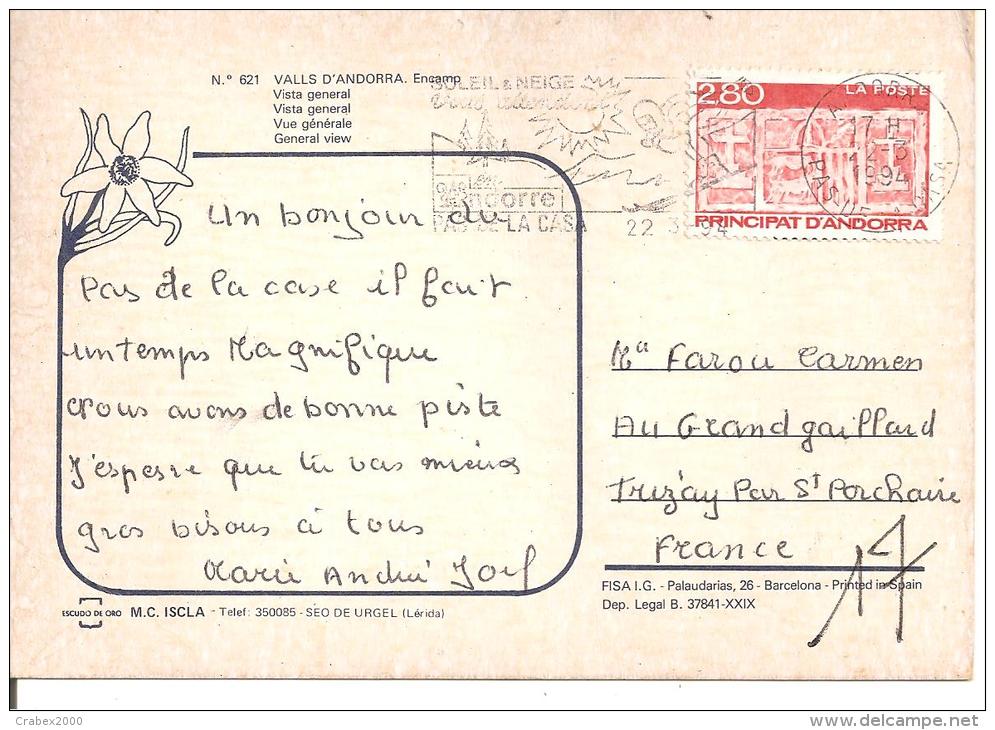 N.º 621 VALLS D'ANDORRA. Encamp
Vista general
Vista general
Vue générale
General view
SOLEIL & NEIGE
PAS DE LA CASA
22 3 94
2,80
LA POSTE
PRINCIPAT D'ANDORRA
17 H
1994
Un bonjour du
Pas de la case il fait
un temps Magnifique
nous avons de bonne piste
J'espere que tu vas mieux
gros bisous à tous
Marie André Joël
Ma Farou Carmen
Au Grand gaillard
Trizay Par St Porchaire
France
17
FISA I.G. - Palaudarias, 26 - Barcelona - Printed in Spain
Dep. Legal B. 37841-XXIX
ESCUDO DE ORO M.C. ISCLA - Telef: 350085 - SEO DE URGEL (Lérida)
Crabex2000
delcampe.net